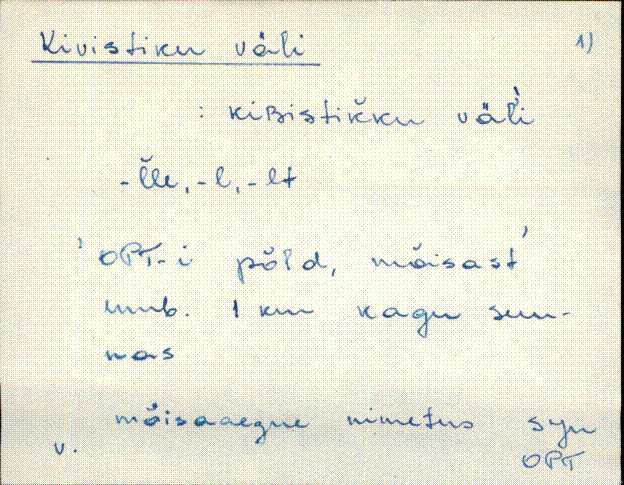 Kivistiku väli 1)
: kiʙistik̆ku väĺi
-l̆le, -l, -lt
'OPT-i põld, mõisast
umb. 1 km kagu suu-
nas
mõisaaegne nimetus syn
v. OPT